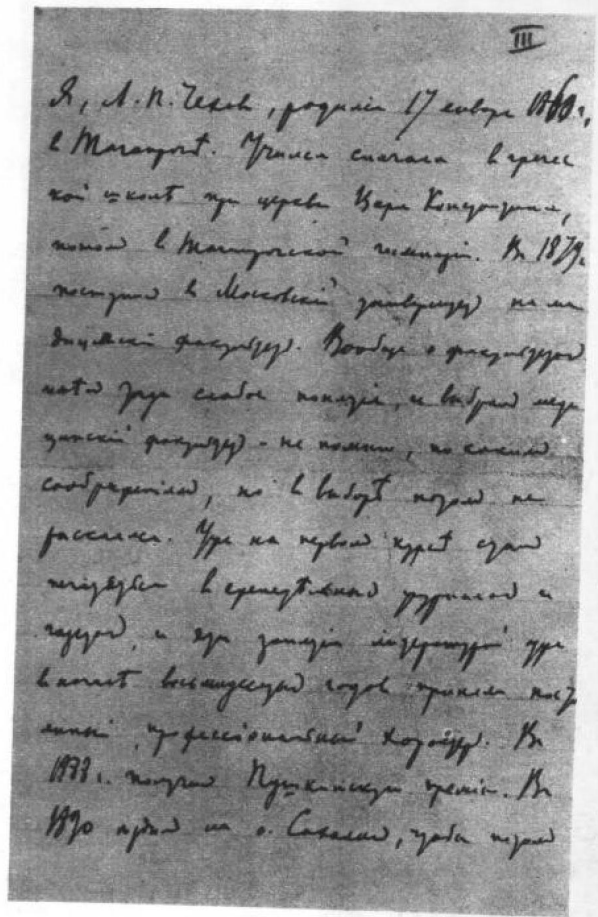 III
Я, А. П. Чехов, родился 17 января 1860 г.,
в Таганроге. Учился сначала в гречес
кой школѣ при церкви Царя Константина,
потом в Таганрогской гимназіи. В 1879 г.
поступил в Московскій университет на ме
дицинскій факультет. Вообще о факультетах
имѣл тогда слабое понятіе, и выбрал меди
цинскій факультет - не помню, по каким
соображеніям, но в выборѣ потом не
раскаялся. Уже на первом курсѣ стал
печататься в еженедѣльных журналах и
газетах, и эти занятія литературой уже
в началѣ восьмидесятых годов приняли посто
янный, профессіональный характер. В
1888 г. получил Пушкинскую премію. В
1890 ѣздил на о. Сахалин, чтобы потом